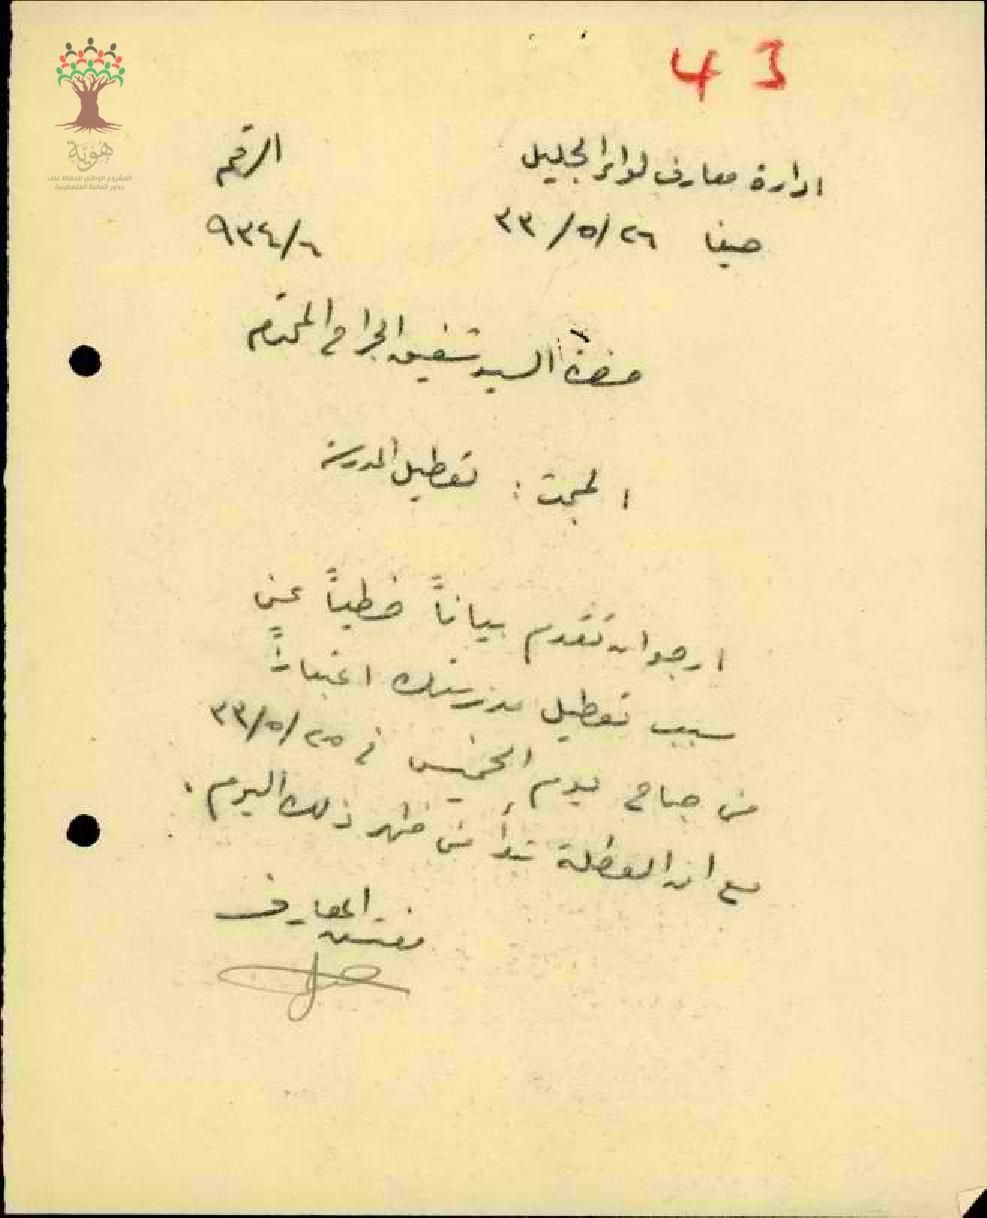 43
هوية
المشروع الوطني للحفاظ على
جذور العائلة الفلسطينية
ادارة معارف لواء الجليل
الرقم
حيفا ٢٦/٥/٣٣
٩٣٤/٦
حضرة السيد شفيق الجراح المحترم
المبحث : تعطيل المدرسة
ارجو ان تقدم بياناً خطياً عن
سبب تعطيل مدرستك اعتباراً
من صباح يوم الخميس في ٢٥/٥/٣٣
مع ان العطلة تبدأ من ظهر ذلك اليوم .
مفتش المعارف